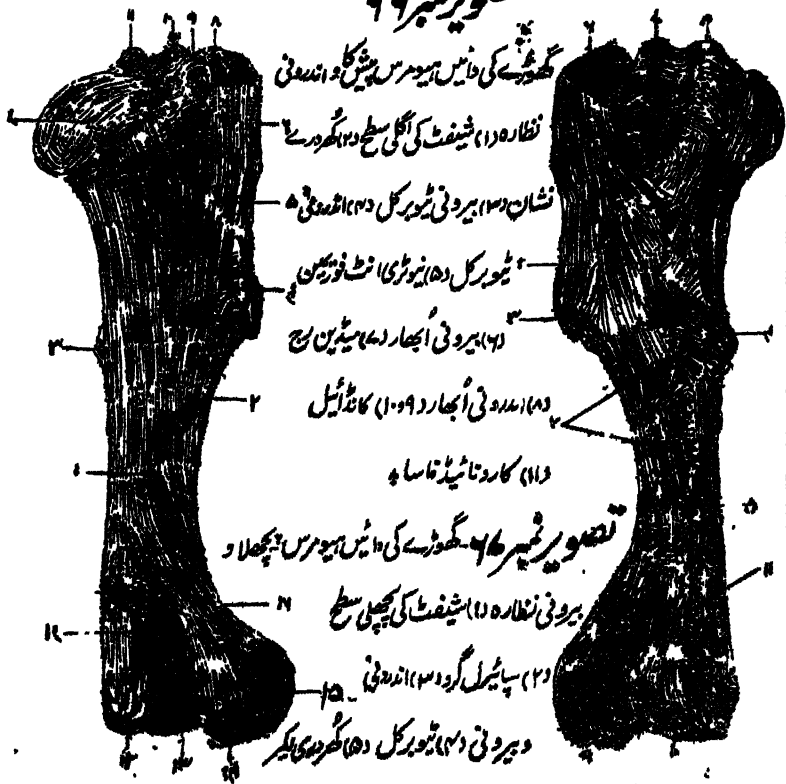 تصویر نمبر ۶۶
گھوڑے کی دائیں ہیومرس پیش کا و اندرونی
نظارہ (۱) شیفٹ کی اگلی سطح (۲) کھردرے
نشان (۳) بیرونی ٹیوبرکل (۴) اندرونی
ٹیوبرکل (۵) نیوٹری انٹ فوریمین
(۶) بیرونی اُبھار (۷) میڈین رج
(۸) اندرونی اُبھار (۹و۱۰) کانڈائیل
(۱۱) کارونائیڈ فاسا
تصویر نمبر ۶۷۔ گھوڑے کی دائیں ہیومرس پچھلا و
بیرونی نظارہ (۱) شیفٹ کی پچھلی سطح
(۲) سپائیرل گرو (۳) اندرونی
و بیرونی (۴) ٹیوبرکل (۵) کھردری لکیر